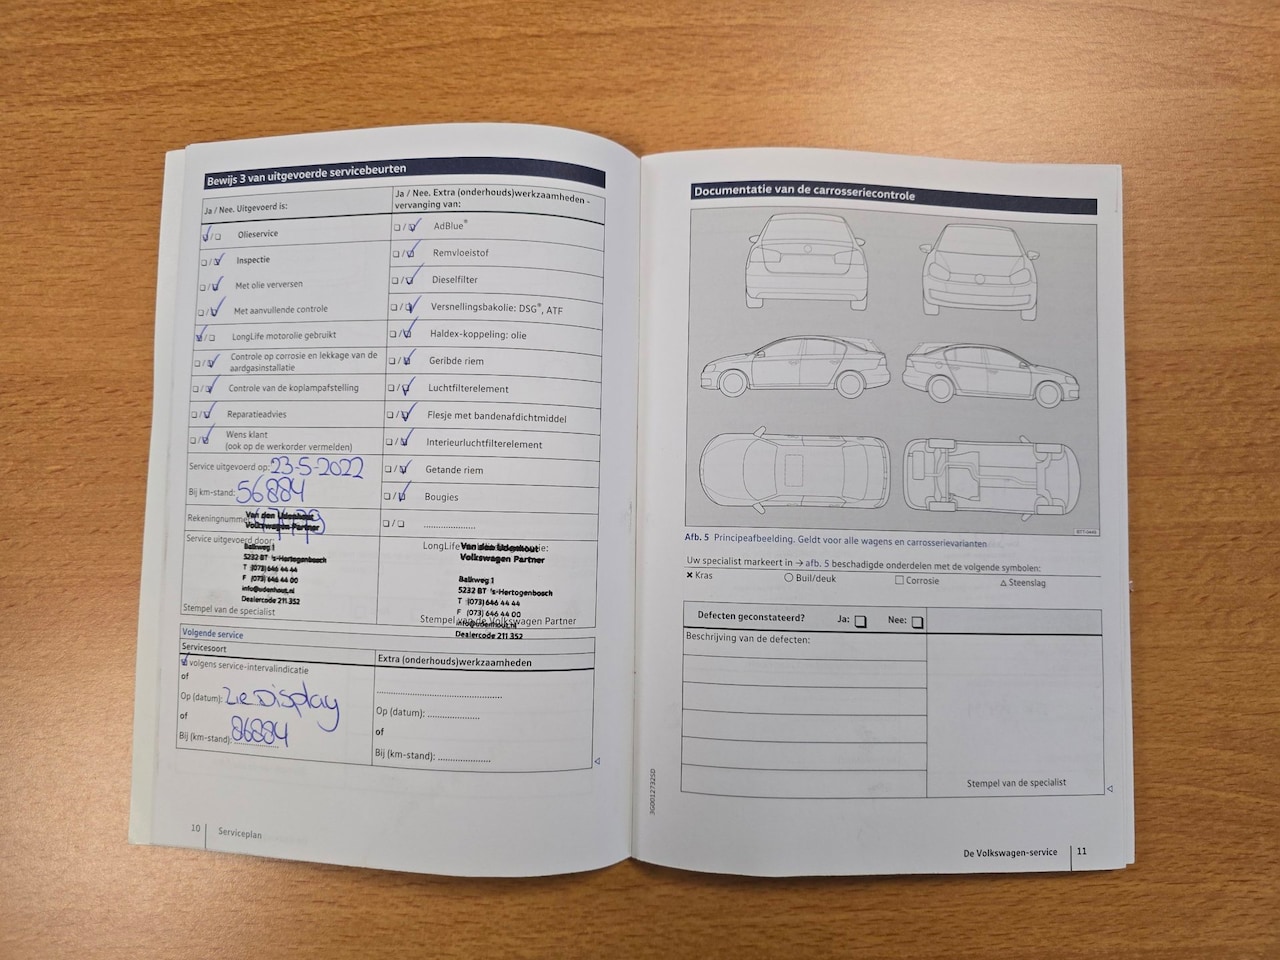 Bewijs 3 van uitgevoerde servicebeurten
Ja / Nee. Uitgevoerd is:
Olieservice
Inspectie
Met olie verversen
Met aanvullende controle
LongLife motorolie gebruikt
Controle op corrosie en lekkage van de
aardgasinstallatie
Controle van de koplampafstelling
Reparatieadvies
Wens klant
(ook op de werkorder vermelden)
Service uitgevoerd op: 23-5-2022
Bij km-stand: 56884
Rekeningnummer:
Van den Udenhout
Volkswagen Partner
Service uitgevoerd door:
Balkweg 1
5232 BT 's-Hertogenbosch
T (073) 646 44 44
F (073) 646 44 00
info@udenhout.nl
Dealercode 211.352
Stempel van de specialist
Ja / Nee. Extra (onderhouds)werkzaamheden -
vervanging van:
AdBlue®
Remvloeistof
Dieselfilter
Versnellingsbakolie: DSG®, ATF
Haldex-koppeling: olie
Geribde riem
Luchtfilterelement
Flesje met bandenafdichtmiddel
Interieurluchtfilterelement
Getande riem
Bougies
....................
LongLife
Van den Udenhout
Volkswagen Partner
Balkweg 1
5232 BT 's-Hertogenbosch
T (073) 646 44 44
F (073) 646 44 00
Stempel van de Volkswagen Partner
info@udenhout.nl
Dealercode 211.352
Volgende service
Servicesoort
volgens service-intervalindicatie
of
Op (datum): zie Display
of
Bij (km-stand): 86884
Extra (onderhouds)werkzaamheden
Op (datum): ....................
of
Bij (km-stand): ....................
10 Serviceplan
Documentatie van de carrosseriecontrole
Afb. 5 Principeafbeelding. Geldt voor alle wagens en carrosserievarianten
Uw specialist markeert in → afb. 5 beschadigde onderdelen met de volgende symbolen:
× Kras
○ Buil/deuk
□ Corrosie
△ Steenslag
Defecten geconstateerd? Ja: Nee:
Beschrijving van de defecten:
Stempel van de specialist
3G0012732SD
De Volkswagen-service 11